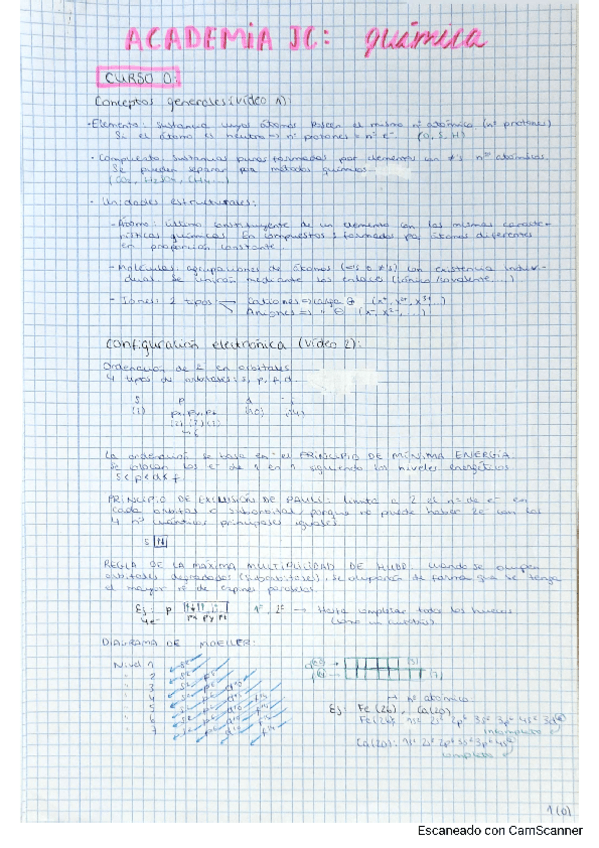 ACADEMIA JC: química
CURSO 0:
Conceptos generales (vídeo 1):
- Elemento: sustancia cuyos átomos poseen el mismo nº atómico (nº protones)
Si el átomo es neutro → nº protones = nº e⁻ (O, S, H)
- Compuesto: sustancias puras formadas por elementos con ≠'s nºs atómicos.
Se pueden separar por métodos químicos
(CO₂, H₂SO₄, CH₄...)
- Unidades estructurales:
- Átomo: último constituyente de un elemento con las mismas caracte-
rísticas químicas. En compuestos formados por átomos diferentes
en proporción constante.
- Moléculas: agrupaciones de átomos (='s o ≠'s) con existencia indivi-
dual. Se unirán mediante los enlaces (iónico, covalente, ...)
- Iones: 2 tipos Cationes ⇒ carga ⊕ (x⁺, x²⁺, x³⁺...)
Aniones ⇒ " ⊖ (x⁻, x²⁻, ...)
Configuración electrónica (vídeo 2):
Ordenación de e⁻ en orbitales
4 tipos de orbitales: s, p, f, d.
s p d f
px, py, pz
La ordenación se basa en el PRINCIPIO DE MÍNIMA ENERGÍA
Se colocan los e⁻ de 1 en 1 siguiendo los niveles energéticos
s < p < d < f
PRINCIPIO DE EXCLUSIÓN DE PAULI: limita a 2 el nº de e⁻ en
cada orbital o suborbital, porque no puede haber 2e⁻ con los
4 nºs cuánticos principales iguales
S
REGLA DE LA MÁXIMA MULTIPLICIDAD DE HUND: cuando se ocupen
orbitales degenerados (suborbitales), se ocuparán de forma que se tenga
el mayor nº de espines paralelos.
Ej: p 1º, 2º → Hasta completar todos los huecos
4e⁻ px py pz
DIAGRAMA DE MOELLER:
Nivel 1
2
3
4
5
6
7
→ nº atómico
Ej: Fe (26), Ca (20)
Fe (26): 1s² 2s² 2p⁶ 3s² 3p⁶ 4s² 3d⁶
incompleto
Ca (20): 1s² 2s² 2p⁶ 3s² 3p⁶ 4s²
completo
1 (0)
Escaneado con CamScanner